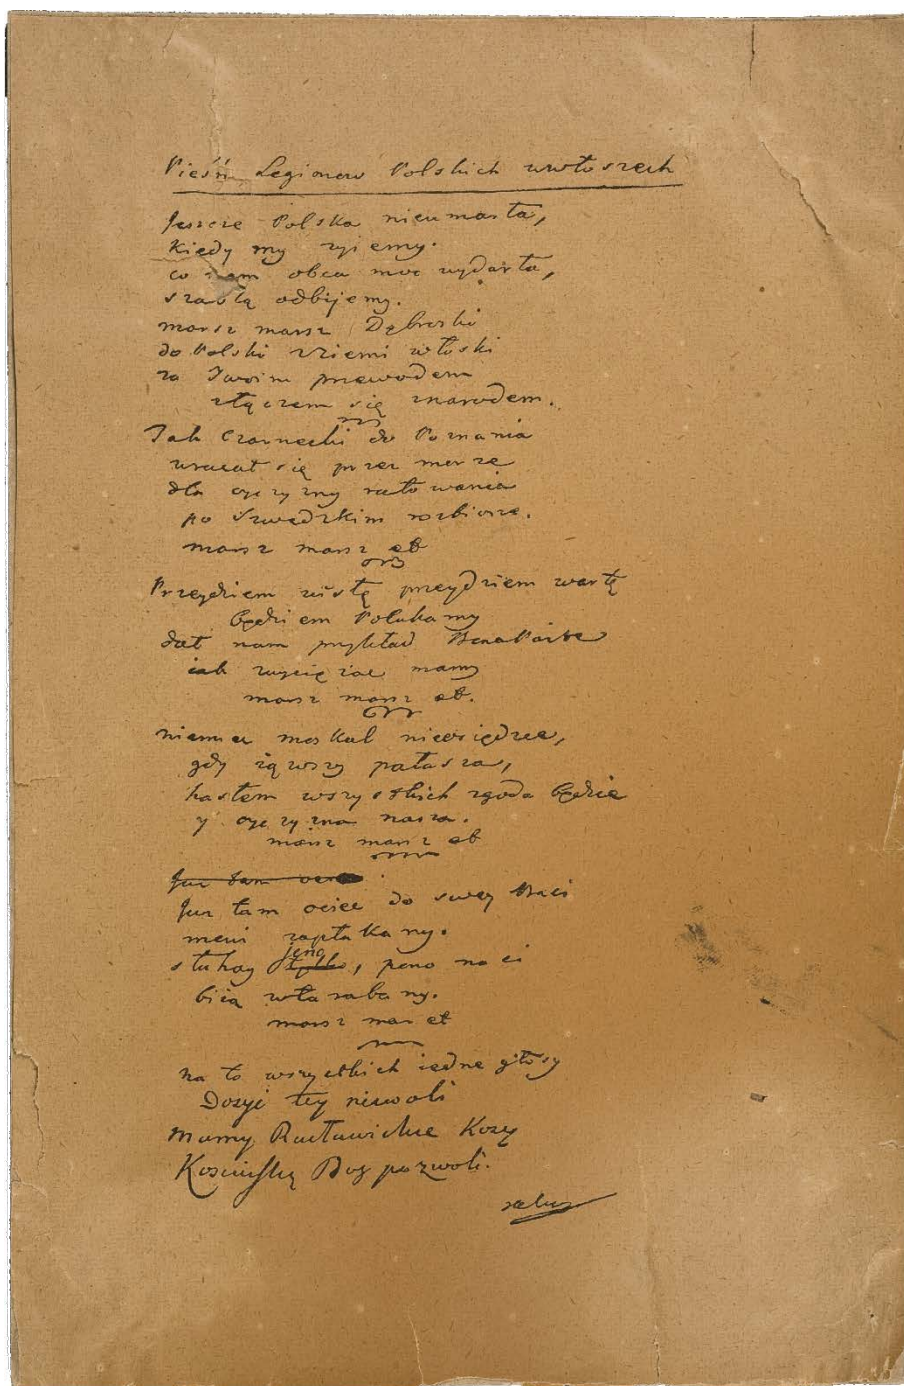 Pieśń Legionow Polskich wwłoszech
Jeszcze Polska nieumarła,
kiedy my żyiemy.
co nam obca moc wydarła,
szablą odbijemy.
marsz marsz Dąbroski
do Polski zziemi włoski
za Twoim przewodem
złączem się znarodem.
Jak Czarnecki do Poznania
wracał się przez morze
dla oyczyzny ratowania
po Szwedzkim rozbiorze.
marsz marsz et
Przeydziem wisłę przeydziem wartę
będziem Polakamy
dał nam przykład BonaParte
iak zwycięzac mamy
marsz marsz et.
niemiec moskal nieosiędzie,
gdy iąwszy pałasza,
hasłem wszystkich zgoda będzie
y oyczyzna nasza.
marsz marsz et
Juz tam
Juz tam ociec do swey Basi
mowi zapłakany.
słuhay jeno, pono nasi
biią wtarabany.
marsz mar et
na to wszystkich iedne głosy
Dosyć tey niewoli
Mamy Racławickie Kosy
Kosciuszkę Bog pozwoli.